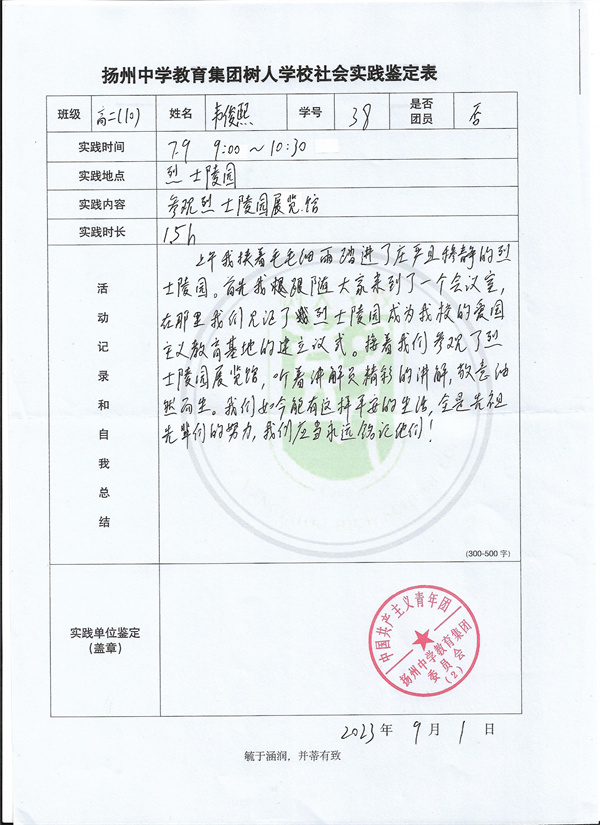 扬州中学教育集团树人学校社会实践鉴定表
班级 高二(10) 姓名 韦俊熙 学号 38 是否团员 否
实践时间 7.9 9:00~10:30
实践地点 烈士陵园
实践内容 参观烈士陵园展览馆
实践时长 1.5h
活动记录和自我总结
上午我挨着毛毛细雨踏进了庄严且静的烈
士陵园。首先我跟随大家来到了一个会议室,
在那里我们见证了烈士陵园成为我校的爱国
主义教育基地的建立议式。接着我们参观了烈
士陵园展览馆,听着讲解员精彩的讲解,敬意油
然而生。我们如今能有这样平安的生活,全是先祖
先辈们的努力,我们应当永远铭记他们!
(300-500字)
实践单位鉴定
(盖章)
中国共产主义青年团
扬州中学教育集团
委员会
(2)
2023年 9月 1日
毓于涵润,并蒂有致